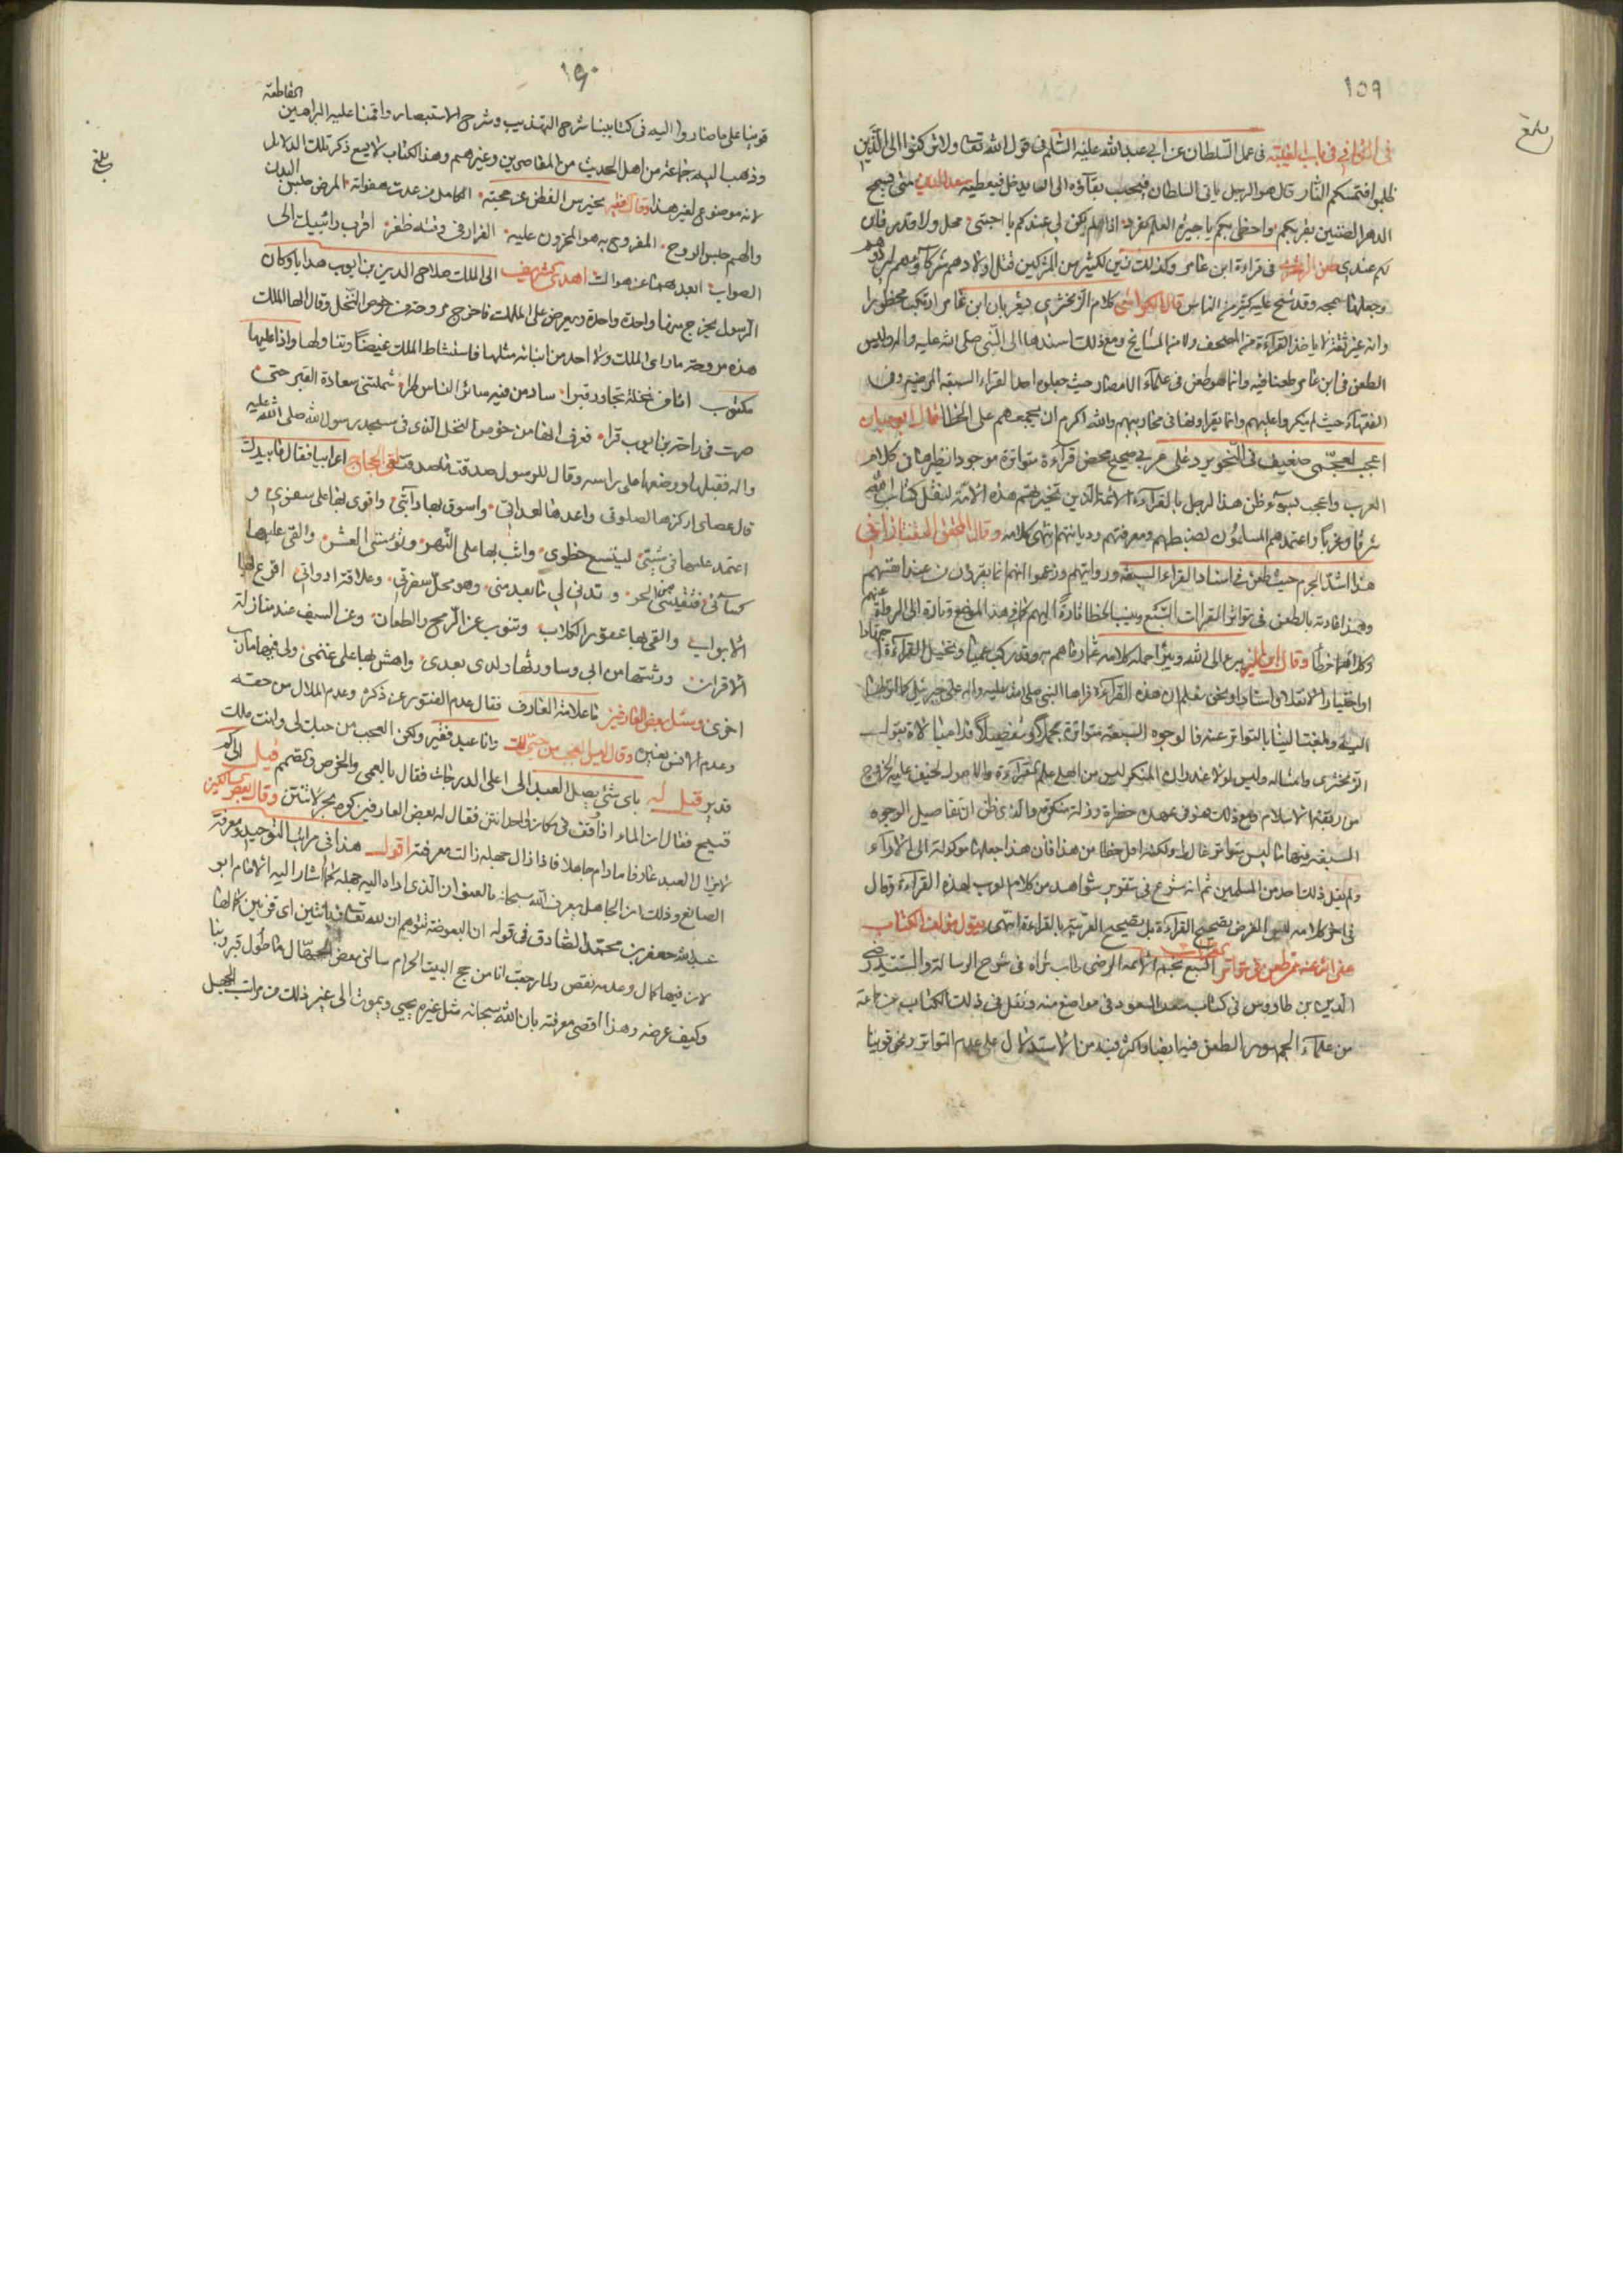 ١٥٩
بلغ
في الكافي في باب المعيشة في عمل السلطان عن ابي عبد الله عليه السلام في قول الله تعا ولا تركنوا الى الذين
ظلموا فتمسكم النار قال هو الرجل ياتي السلطان فيحب بقاؤه الى ان يدخل فيعطيه سعد الدين متى يسمح
الدهر الضنين بقربكم واحظى بكم يا جيرة العلم الفرد اذا لم يكن لي عندكم يا احبتي محل ولا قدر فان
لكم عندي طعن الزمخشري في قراءة ابن عامر وكذلك زين لكثير من المشركين قتل اولادهم شركآؤهم
وجعلها سمجة وقد شنع عليه كثير من الناس قال الكواشي كلام الزمخشري يشعر بان ابن عامر ارتكب محظورا
وانه غير ثقة لانه ياخذ القراءة من المصحف ولا من المشايخ ومع ذلك اسندها الى النبي صلى الله عليه واله وليس
الطعن في ابن عامر طعنا فيه وانما هو طعن في علمآء الامصار حيث جعلوه احد القراء السبعة المرضية وفي
الفقهآء حيث لم ينكروا عليهم وانما يقراونها في محاريبهم والله اكرم ان يجمعهم على الخطا قال ابو حيان
اعجب لعجمي ضعيف في النحو يرد على عربي صحيح محض قرآءة متواترة موجودا نظيرها في كلام
العرب واعجب لسوء ظن هذا الرجل بالقراءة الائمة الذين تخيرتهم هذه الامة لنقل كتاب الله
شرقا وغربا واعتمدهم المسلمون لضبطهم ومعرفتهم وديانتهم انتهى كلامه وقال المحقق التفتازاني
هذا اشد الجرم حيث طعن في اسناد القراء السبعة وروايتهم وزعموا انهم انما يقرؤن من عند انفسهم
وهذه عادته يالطعن في تواتر القراات السبع وينسب الخطا تارة اليهم كما في هذا الموضع وتارة الى الرواة عنهم
وكلاهما خطأ وقال ابن المنير نبرء الى الله ونبرئ حملة كلامه عما رماهم به وقد ركب عميا وتخيل القراءة اجتهادا
او اختيارا لا نقلا واسنادا ونحن نعلم ان هذه القراءة قراها النبي صلى الله عليه واله على جبرئيل كما انزلها
اليه وبلغتنا الينا بالتواتر عنه فالوجوه السبعة متواترة جملة وتفصيلا فلا مبالاة بقول
الزمخشري وامثاله ولولا عذر ان المنكر ليس من اهل علم القراءة والاصول لخيف عليه الخروج
من ربقة الاسلام ومع ذلك فهو في عهدة خطرة وزلة منكرة والذي ظن ان تفاصيل الوجوه
السبعة فيها ما ليس متواتر غالط ولكنه اقل خطا من هذا فان هذا جعلها موكولة الى الارآء
ولم يقل ذلك احد من المسلمين ثم انه شرع في تقرير شواهد من كلام العرب لهذه القراءة وقال
في اخر كلامه ليس الغرض تصحيح القراءة بل تصحيح العربية بالقراءة انتهى يقول مؤلف الكتاب
عفى الله عنه ممن طعن في تواتر القراات السبع نجم الائمة الرضي طاب ثراه في شرح الرسالة والسيد رضي
الدين بن طاووس في كتاب سعد السعود في مواضع منه ونقل في ذلك الكتاب عن جماعة
من علمآء الجمهور الطعن فيه ايضا واكثر فيه من الاستدلال على عدم التواتر ونحن قوينا
١٦٠
بلغ
قوينا على ما صاروا اليه في كتابينا شرح التهذيب وشرح الاستبصار واقمنا عليه البراهين القاطعة
وذهب اليه جماعة من اهل الحديث من المعاصرين وغيرهم وهذا الكتاب لا يسع ذكر تلك الدلائل
لانه موضوع لغير هذا وقال فقيه يخبرس الفطن عن حجته الكامل من عدت هفواته المرض حبس البدن
والهم حبس الروح المفروح به هو المحزون عليه الفرار في وقته ظفر اقرب رائييك الى
الصواب ابعدهما عن هواك اهدى شريف الى الملك صلاح الدين بن ايوب هدايا وكان
الرسول يخرج منها واحدة واحدة ويعرض على الملك فاخرج مروحة من خوص النخل وقال ايها الملك
هذه مروحة ما راى الملك ولا احد من ابائه مثلها فاستشاط الملك غيضا وتناولها واذا عليها
مكتوب انا من نخلة تجاور قبرا ساد من فيه سائر الناس طرا شملتني سعادة القبر حتى
صرت في راحة بن ايوب قرا فعرف انها من خوص النخل الذي في مسجد رسول الله صلى الله عليه
واله فقبلها ووضعها على راسه وقال للرسول صدقت صدقت لقي الحجاج اعرابيا فقال ما بيدك
قال عصاي اركزها لصلوتي واعدها لعداتي واسوق بها دابتي واقوى بها على سفري و
اعتمد عليها في مشيتي ليتسع خطوي واثب بها على النهر وتؤمنني العثر والقي عليها
كسائي فتقيني الحر وتدني لي ما بعد مني وهو محل سفرتي وعلاقة ادواتي اقرع بها
الابواب والقي بها عقور الكلاب وتنوب عن الرمح والطعان وعن السيف عند منازلة
الاقران ورثتها من ابي وساورثها ولدي بعدي واهش بها على غنمي ولي فيها مارب
اخرى وسئل بعض العارفين ما علامة العارف فقال عدم الفتور عن ذكره وعدم الملال من حقه
وعدم الانس بغيره وقال ليس العجب من حبي لك وانا عبد فقير ولكن العجب من حبك لي وانت ملك
قدير قيل له باي شئ يصل العبد الى اعلى الدرجات فقال بالعمى والخرس والصمم قيل
قبيح فقال ان الماء اذا وقف في مكان واحد انتن فقال له بعض العارفين كن بحرا لا تنتن وقال بعض
لايزال العبد عارفا ما دام جاهلا فاذا زال جهله زالت معرفته اقول هذا في مراتب التوحيد ومعرفة
الصانع وذلك ان الجاهل يعرف الله سبحانه بالعنوان الذي اداه اليه جهله كما اشار اليه الامام ابو
عبد الله جعفر بن محمد الصادق في قوله ان البعوضة تتوهم ان لله تعالى زبانتين اي قرنين كمالها
لان فيهما كمال وعدمه نقص ولما رجعت انا من حج البيت الحرام سالني بعض الجهال ما طول قبر ربنا
وكيف عرضه وهذا اقصى معرفته بان الله سبحانه مثل غيره يحيى ويموت الى غير ذلك من مراتب الجهل